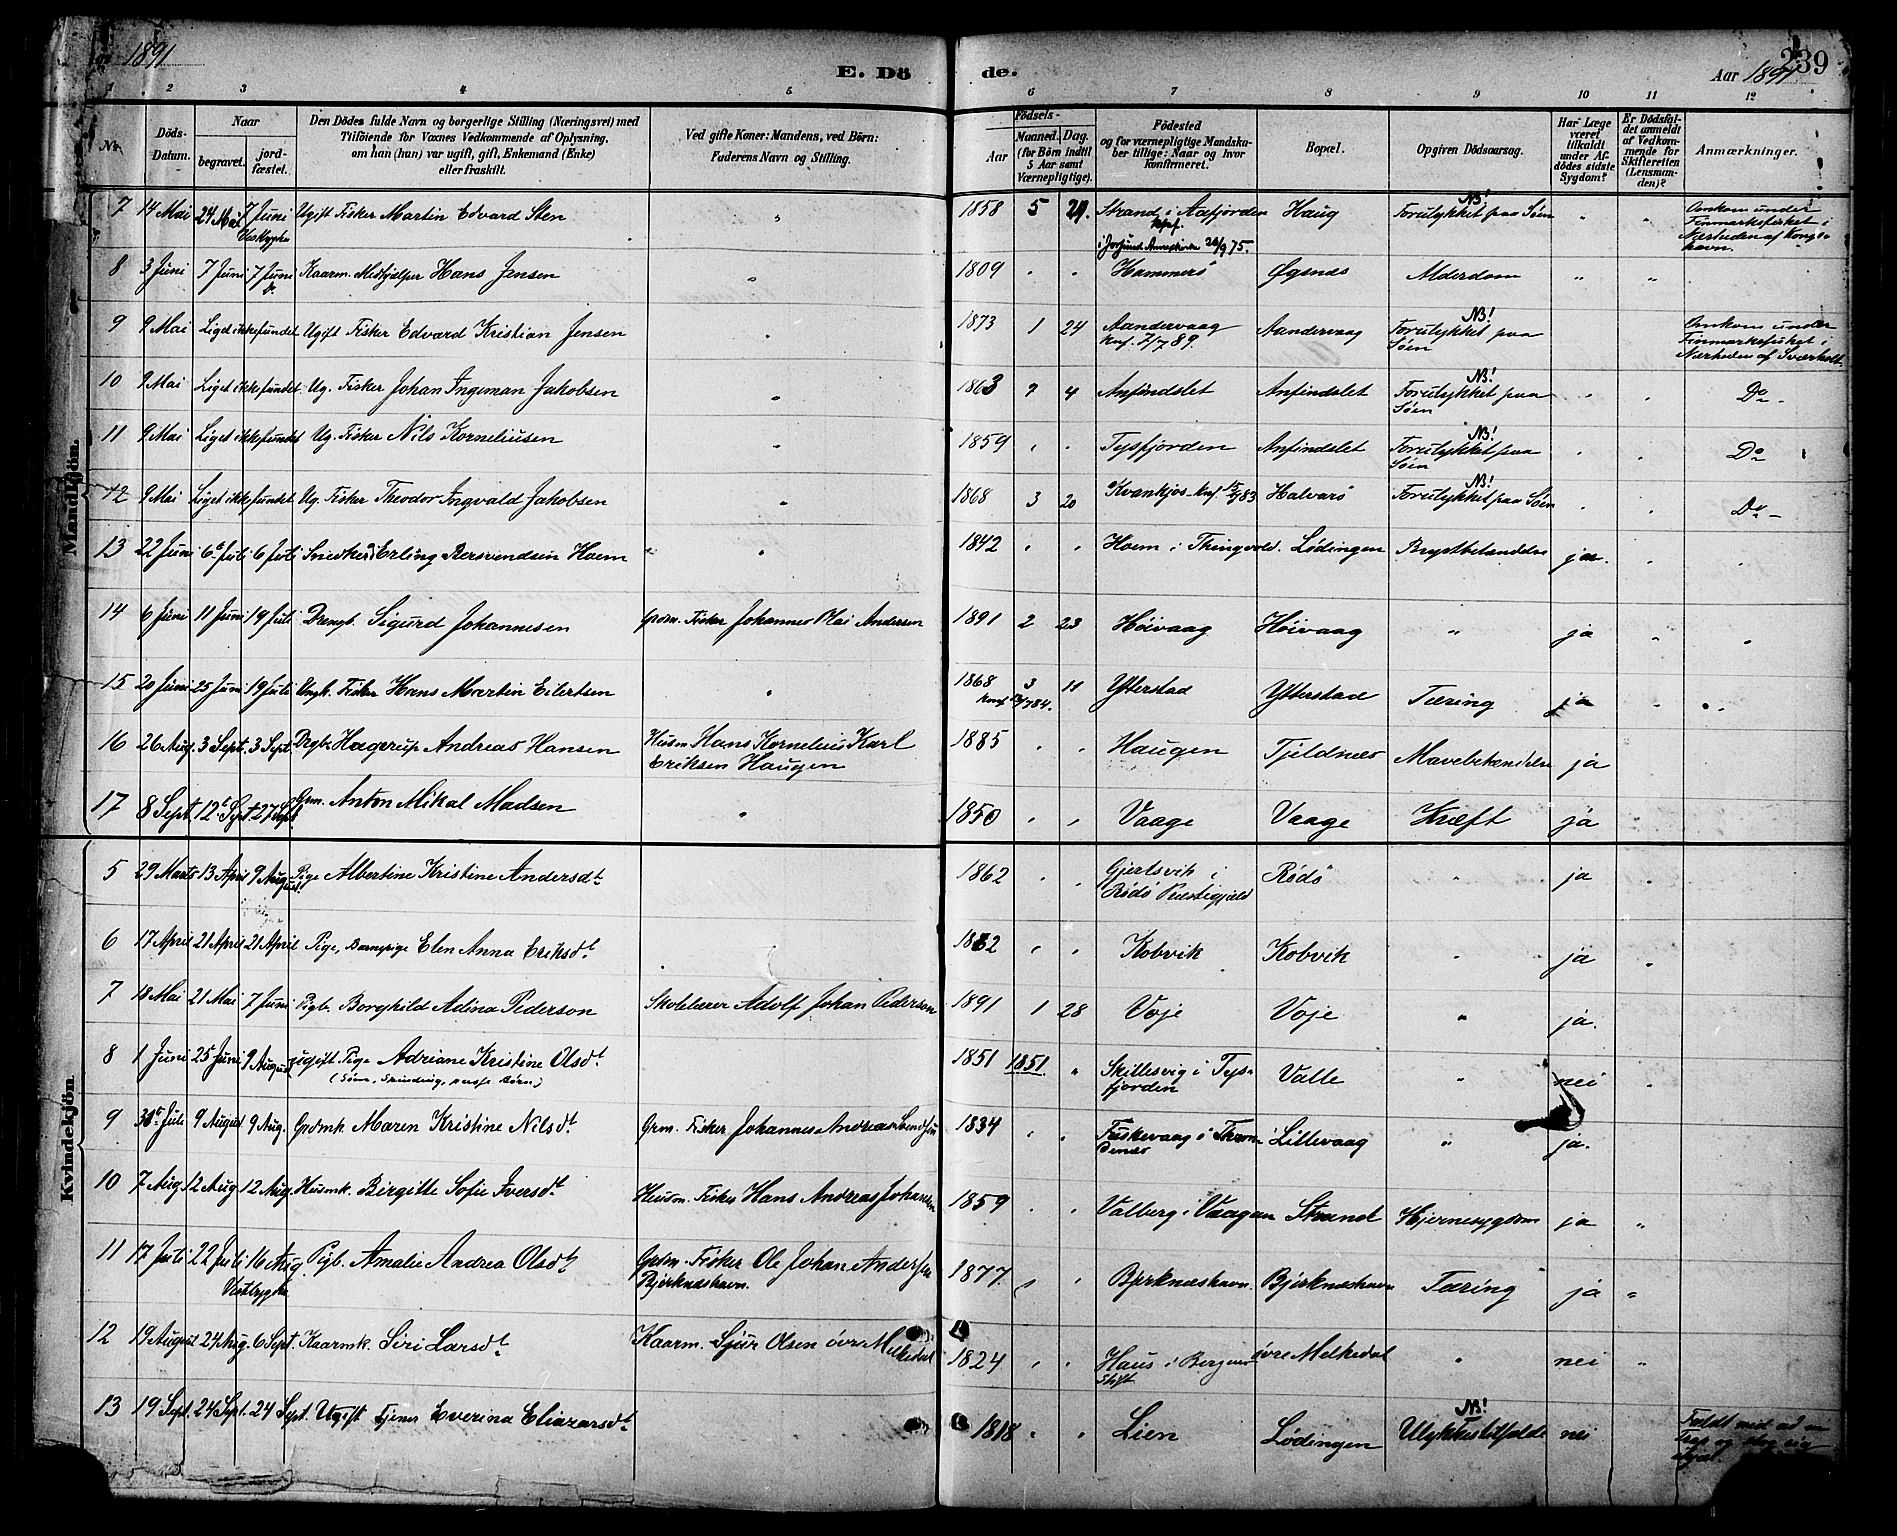 1891
E. Dö
de.
Aar 1891
239
1 2 3 4 5 6 7 8 9 10 11 12
Nr.
Döds-Datum.
Naar
begravet.
jordfæstet.
Den Dödes fulde Navn og borgerlige Stilling (Næringsvei) med
Tilföiende for Voxnes Vedkommende af Oplysning,
om han (hun) var ugift, gift, Enkemand (Enke)
eller fraskilt.
Ved gifte Koner: Mandens, ved Börn:
Faderens Navn og Stilling.
Födsels-
Aar
Maaned. Dag.
(for Börn indtil
5 Aar samt
Værnepligtige).
Födested
og for værnepligtige Mandskaber tillige: Naar og hvor
konfirmeret.
Bopæl.
Opgiven Dödsaarsag.
Har Læge
været
tilkaldt
under Afdödes sidste
Sygdom?
Er Dödsfaldet anmeldt
af Vedkommende for
Skifteretten
(Lensmanden)?
Anmærkninger.
Mandkjön.
7 14 Mai 24 Mai 7 Juni Ugift Fisker Martin Edvard Sten " 1858 5 29. Strand i Aafjorden Haug Forulykket paa Søen NB! " " Omkom under
Finmarksfisket i
Nærheden af Kongshavn.
8 3 Juni 7 Juni 7 Juni Kaarm. Medhjælper Hans Jensen " 1809 " " Hammerö Øgsnæs Alderdom " "
9 9 Mai Liget ikke fundet Ugift Fisker Edvard Kristian Jensen " 1873 1 24 Aandervaag Aandervaag Forulykket paa Søen NB! Omkom under
knf. 2/7 89.
Finmarksfisket i
Nærheden af Sværholt
10 9 Mai Liget ikke fundet Ug. Fisker Johan Ingeman Jakobsen " 1863 9 4 Anfindslet Anfindslet Forulykket paa Søen NB! " " Do
11 9 Mai Liget ikke fundet Ug. Fisker Nils Korneliusen " 1859 " " Tysfjorden Anfindslet Forulykket paa Søen NB! " " Do
12 9 Mai Liget ikke fundet Ug. Fisker Theodor Ingvald Jakobsen " 1868 3 20 Kvankjos Halvarö Forulykket paa Søen NB! " " Do
13 22 Juni 6te Juli 6 Juli Snedker Erling Bersvendsen Hoem " 1842 " " Hoem i Thingvold. Lödingen Brystbetændelse ja. " "
14 6 Juni 11 Juni 19 Juli Drengb. Sigurd Johannesen Grdm. Fisker Johannes Olai Andersen 1891 2 23 Höivaag Höivaag " ja " "
15 20 Juni 25 Juni 19 Juli Ungk. Fisker Hans Martin Eilertsen " 1868 3 11 Ytterstad Ytterstad Tæring ja " "
16 26 Aug. 3 Sept. 3 Sept. Drgb. Hagerup Andreas Hansen Husm Hans Kornelius Karl
Eriksen Haugen 1885 " " Haugen Tjeldnæs Mavebetændelse ja
17 8 Sept. 12te Sept 27 Sept. Grm. Anton Mikal Madsen " 1850 " " Vaage Vaage Kræft ja
Kvindekjön.
5 29 Marts 13 April 9 August Pige Albertine Kristine Andersdt. 1862 " " Gjertsvik i Rödö " ja "
Rödö Præstegjæld
6 17 April 21 April 21 April Pige, Barnepige Elen Anna Eriksdt. " " Kobvik Kobvik " ja "
7 18 Mai 21 Mai 7 Juni Pigb. Borghild Adina Pederson Skolelærer Adolf Johan Pederson 1891 1 28 Voje Voje " ja.
8 1 Juni 25 Juni 9 August ugift Pige Adriane Kristine Olsdt. 1851 1851. " Skillesvig i Tys-
fjorden Valle " nei "
9 30te Juli 9 August 9 Aug. Grdmk. Maren Kristine Nilsdt. Grm. Fisker Johannes Andreas 1834 " " i Lillevaag " ja.
10 7 Aug 12 Aug 12 Aug. Husmk. Birgitte Sofie Iversdt. Husm. Fisker Hans Andreas Johansen 1859 " " Valberg i Vaagan Strand Hjernesygdom ja "
11 17 Juli 22 Juli 16 Aug Pigb. Amalie Andrea Olsdt. Grdm. Fisker Ole Johan Andersen
Bjerknæshavn. 1877 " " Bjerknæshavn. Bjerknæshavn Tæring ja "
12 19 August 24 Aug. 6 Sept. Kaarmk. Siri Larsdt. Kaarm. Sjur Olsen övre Melkedal 1824 " " Haus i Bergens
Stift övre Melkedal " nei "
13 19 Sept. 24 Sept. 24 Sept. Ugift Tjener Everina Eliazarsdt. 1818 " " Lien Lödingen Ulykkestilfælde NB! nei